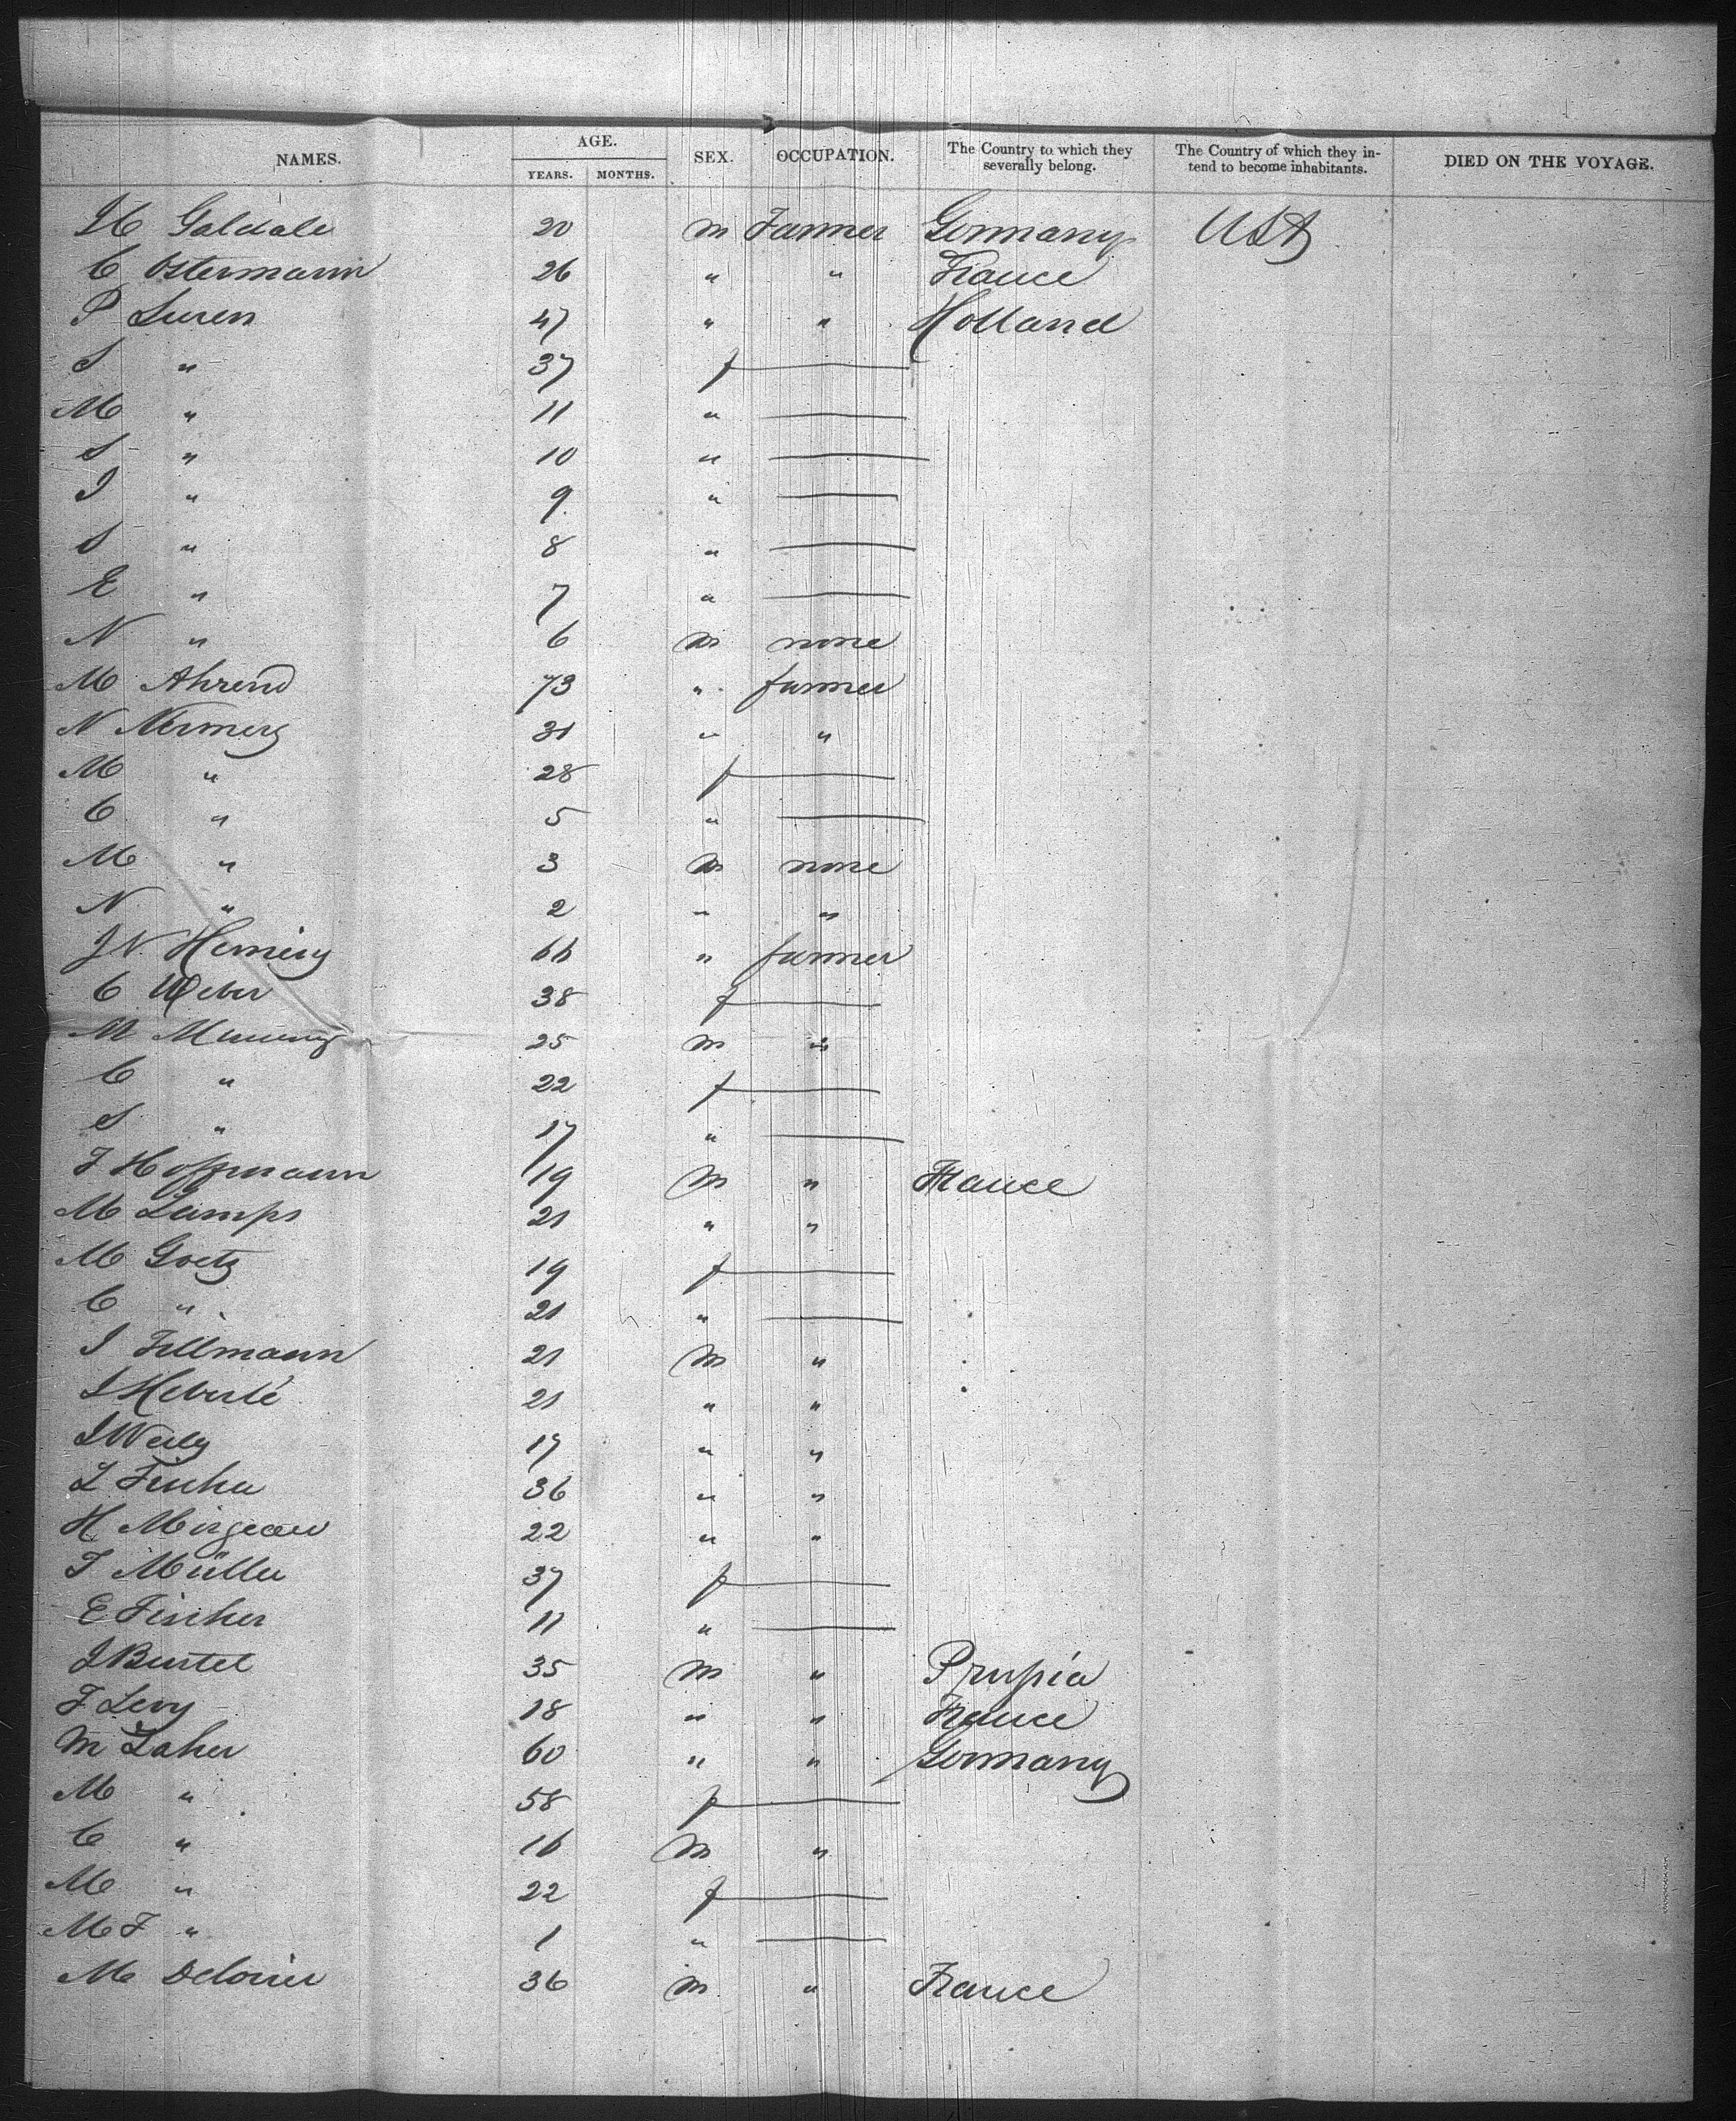 NAMES. AGE. YEARS. MONTHS. SEX. OCCUPATION. The Country to which they severally belong. The Country of which they intend to become inhabitants. DIED ON THE VOYAGE.
20 m Farmer Germany USA
C Ostermann 26 " " France
P Luren 47 " " Holland
S " 37 f
M " 11 "
S " 10 "
J " 9 "
S " 8 "
E " 7 "
N " 6 m none
M Ahrend 73 " farmer
N 31 " "
M " 28 f
C " 5 "
M " 3 m none
N " 2 " "
J N 66 " farmer
C Weber 38 f
M 25 m "
C " 22 f
S " 17 "
J Hoffmann 19 m " France
M Lumps 21 " "
M Goetz 19 f
C " 21 "
J Tillmann 21 m "
J Heberlé 21 " "
J Weily 17 " "
L 36 " "
H 22 " "
T Müller 37 f
E Fischer 11 "
J Burtel 35 m " Prussia
F Levy 18 " " France
M Laher 60 " " Germany
M " 58 f
C " 16 m "
M " 22 f
M F " 1 "
M 36 m " France